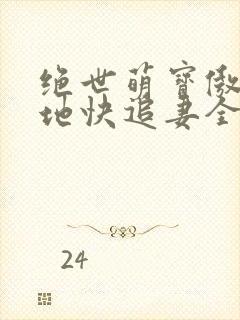 绝世萌宝傲
地快追妻全
24